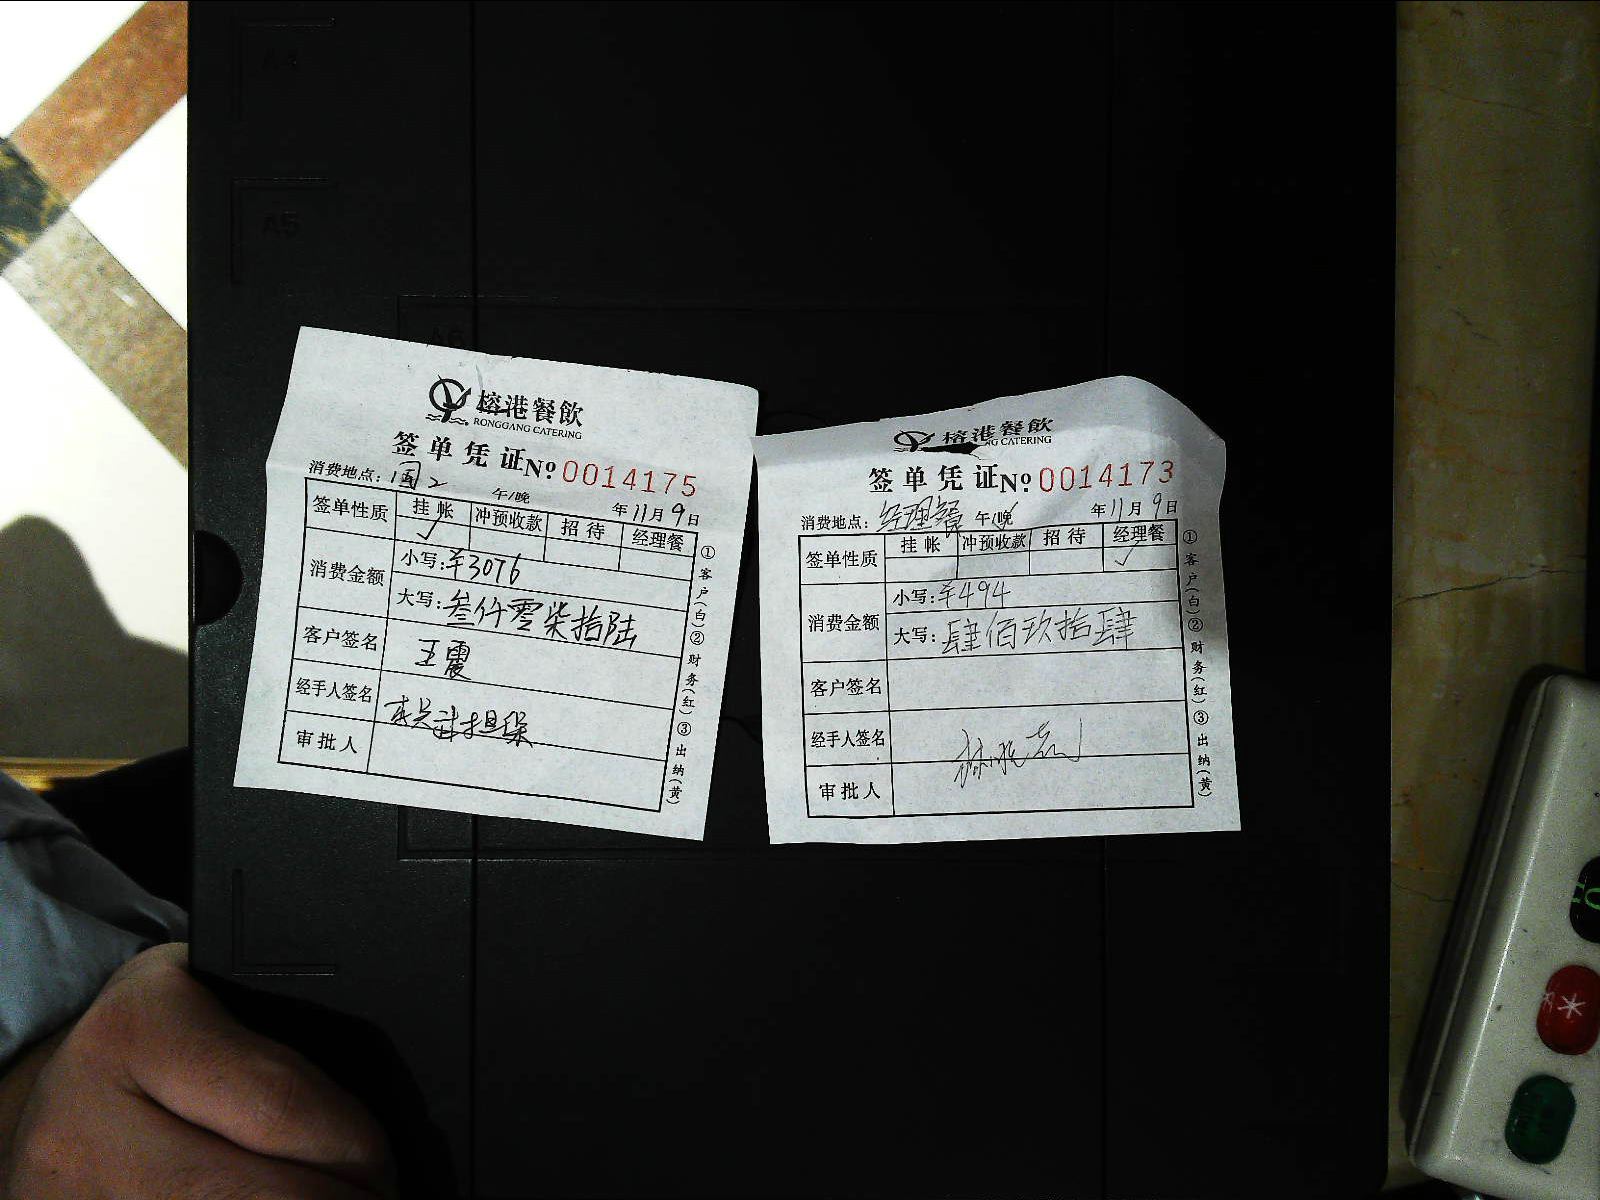 A5
榕港餐飲
RONGGANG CATERING
签单凭证 No 0014175
消费地点：国2 午/晚 年11月9日
签单性质 挂帐 冲预收款 招待 经理餐
✓
消费金额 小写：¥3076
大写：叁仟零柒拾陆
客户签名 王震
经手人签名 担保
审批人
①客户(白)②财务(红)③出纳(黄)
榕港餐飲
NG CATERING
签单凭证 No 0014173
消费地点：经理餐 午/晚 年11月9日
签单性质 挂帐 冲预收款 招待 经理餐
✓
消费金额 小写：¥494
大写：肆佰玖拾肆
客户签名
经手人签名
审批人
①客户(白)②财务(红)③出纳(黄)
*